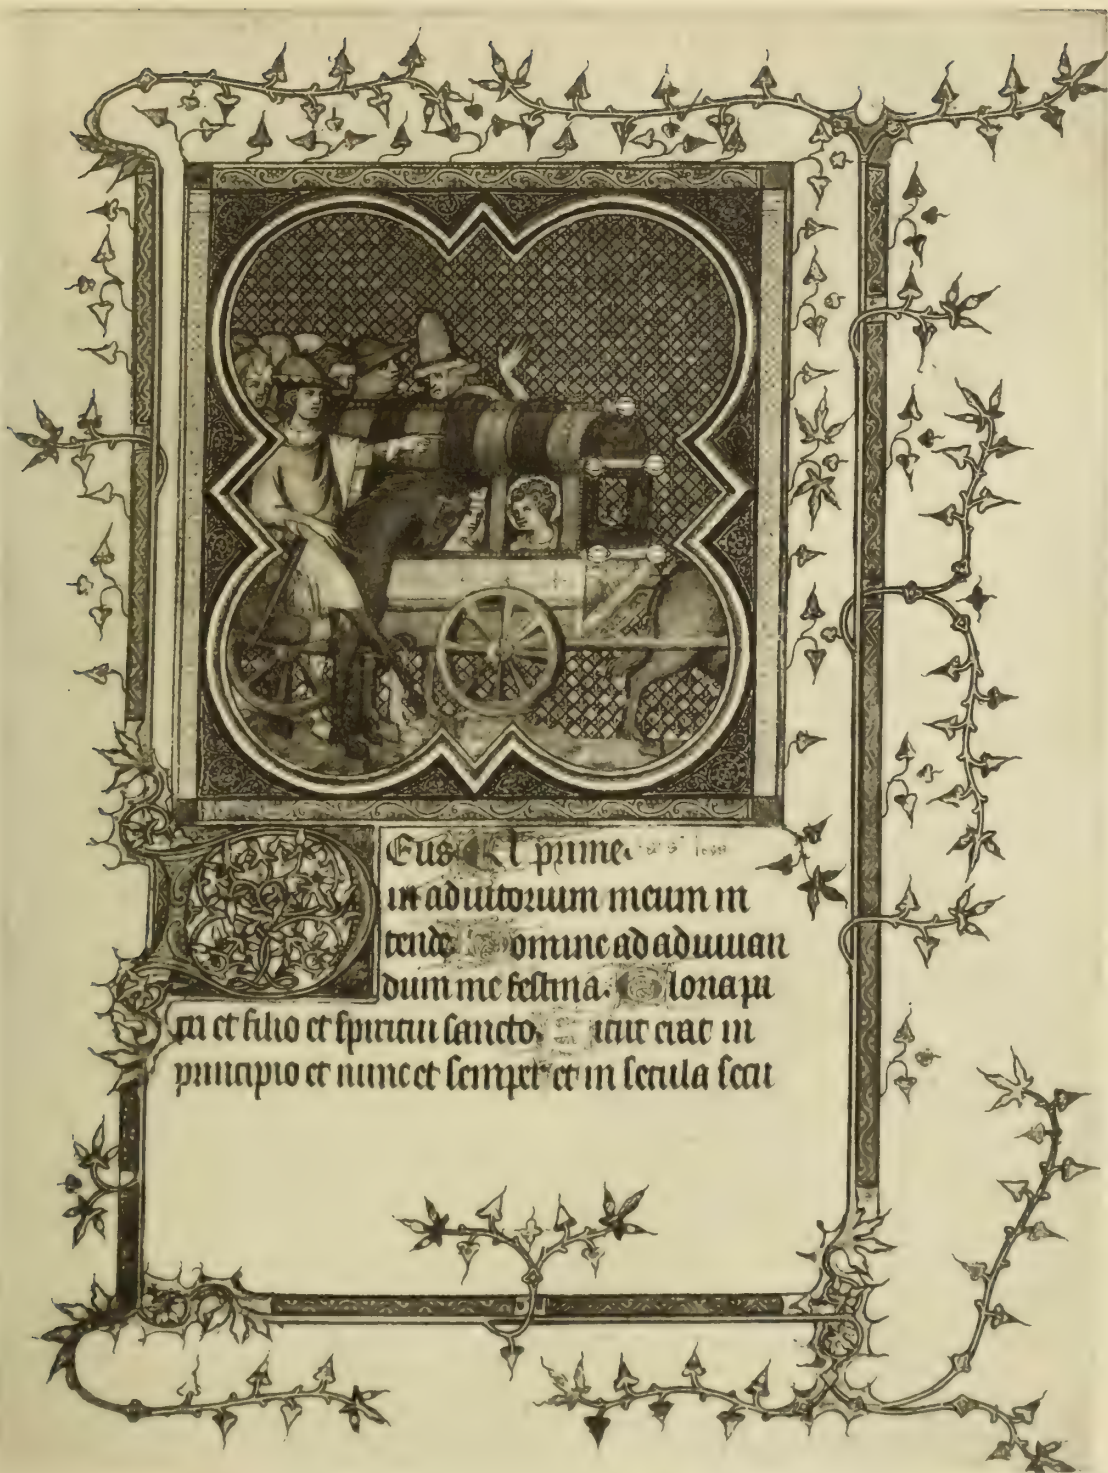 Eus A prime.
in adiutorium meum in
tende. omine ad adiuuan
dum me festina. loria pa
tri et filio et spiritui sancto. icut erat in
principio et nunc et semper et in secula secu